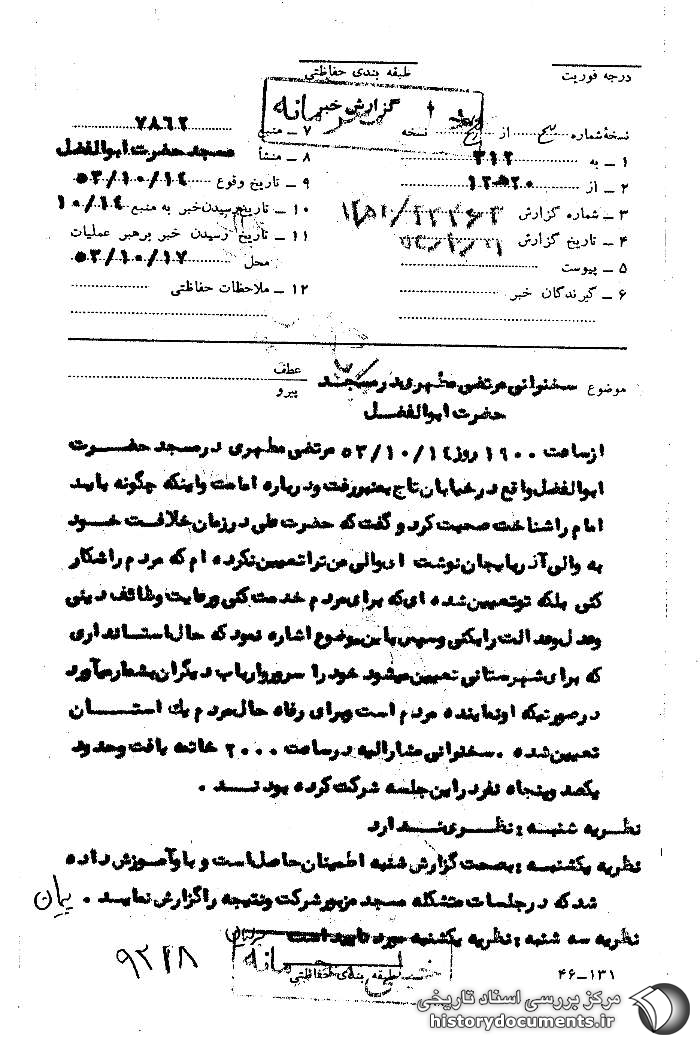 درجه فوریت
طبقه بندی حفاظتی
خیلی محرمانه
گزارش خبر
نسخهٔ شماره از نسخه
۱ ـ به ۳۱۲
۲ ـ از ۱۲ ﻫ ۲۰
۳ ـ شماره گزارش
۴ ـ تاریخ گزارش
۵ ـ پیوست
۶ ـ گیرندگان خبر
۷ ـ منبع ۷۸۶۲
۸ ـ منشأ مسجد حضرت ابوالفضل
۹ ـ تاریخ وقوع ۵۳/۱۰/۱۴
۱۰ ـ تاریخ رسیدن خبر به منبع ۱۰/۱۴
۱۱ ـ تاریخ رسیدن خبر برهبر عملیات
محل ۵۳/۱۰/۱۷
۱۲ ـ ملاحظات حفاظتی
موضوع سخنرانی مرتضی مطهری در مسجد
حضرت ابوالفضل
عطف
پیرو
ازساعت ۱۹۰۰ روز ۵۳/۱۰/۱۴ مرتضی مطهری در مسجد حضرت
ابوالفضل واقع در خیابان تاج بمنبر رفت و درباره امامت و اینکه چگونه باید
امام را شناخت صحبت کرد و گفت که حضرت علی در زمان خلافت خود
به والی آذربایجان نوشت ای والی من ترا تعیین نکرده ام که مردم را شکار
کنی بلکه تو تعیین شده ای که برای مردم خدمت کنی و رعایت وظائف دینی
و عدل و عدالت را بکنی و سپس باین موضوع اشاره نمود که حال استانداری
که برای شهرستانی تعیین میشود خود را سرور و ارباب دیگران بشمار میآورد
در صورتیکه او نماینده مردم است و برای رفاه حال مردم یك استان
تعیین شده . سخنرانی مشارالیه در ساعت ۲۰۰۰ خاتمه یافت و حدود
یکصد و پنجاه نفر در این جلسه شرکت کرده بودند .
نظریه شنبه : نظری ندارد
نظریه یکشنبه : بصحت گزارش شنبه اطمینان حاصل است و باو آموزش داده
شد که در جلسات متشکله مسجد مزبور شرکت و نتیجه را گزارش نماید . پیمان
نظریه سه شنبه : نظریه یکشنبه مورد تایید است
۹۲۲۸
خیلی محرمانه
طبقه بندی حفاظتی
۴۶-۱۳۱
مرکز بررسی اسناد تاریخی
historydocuments.ir